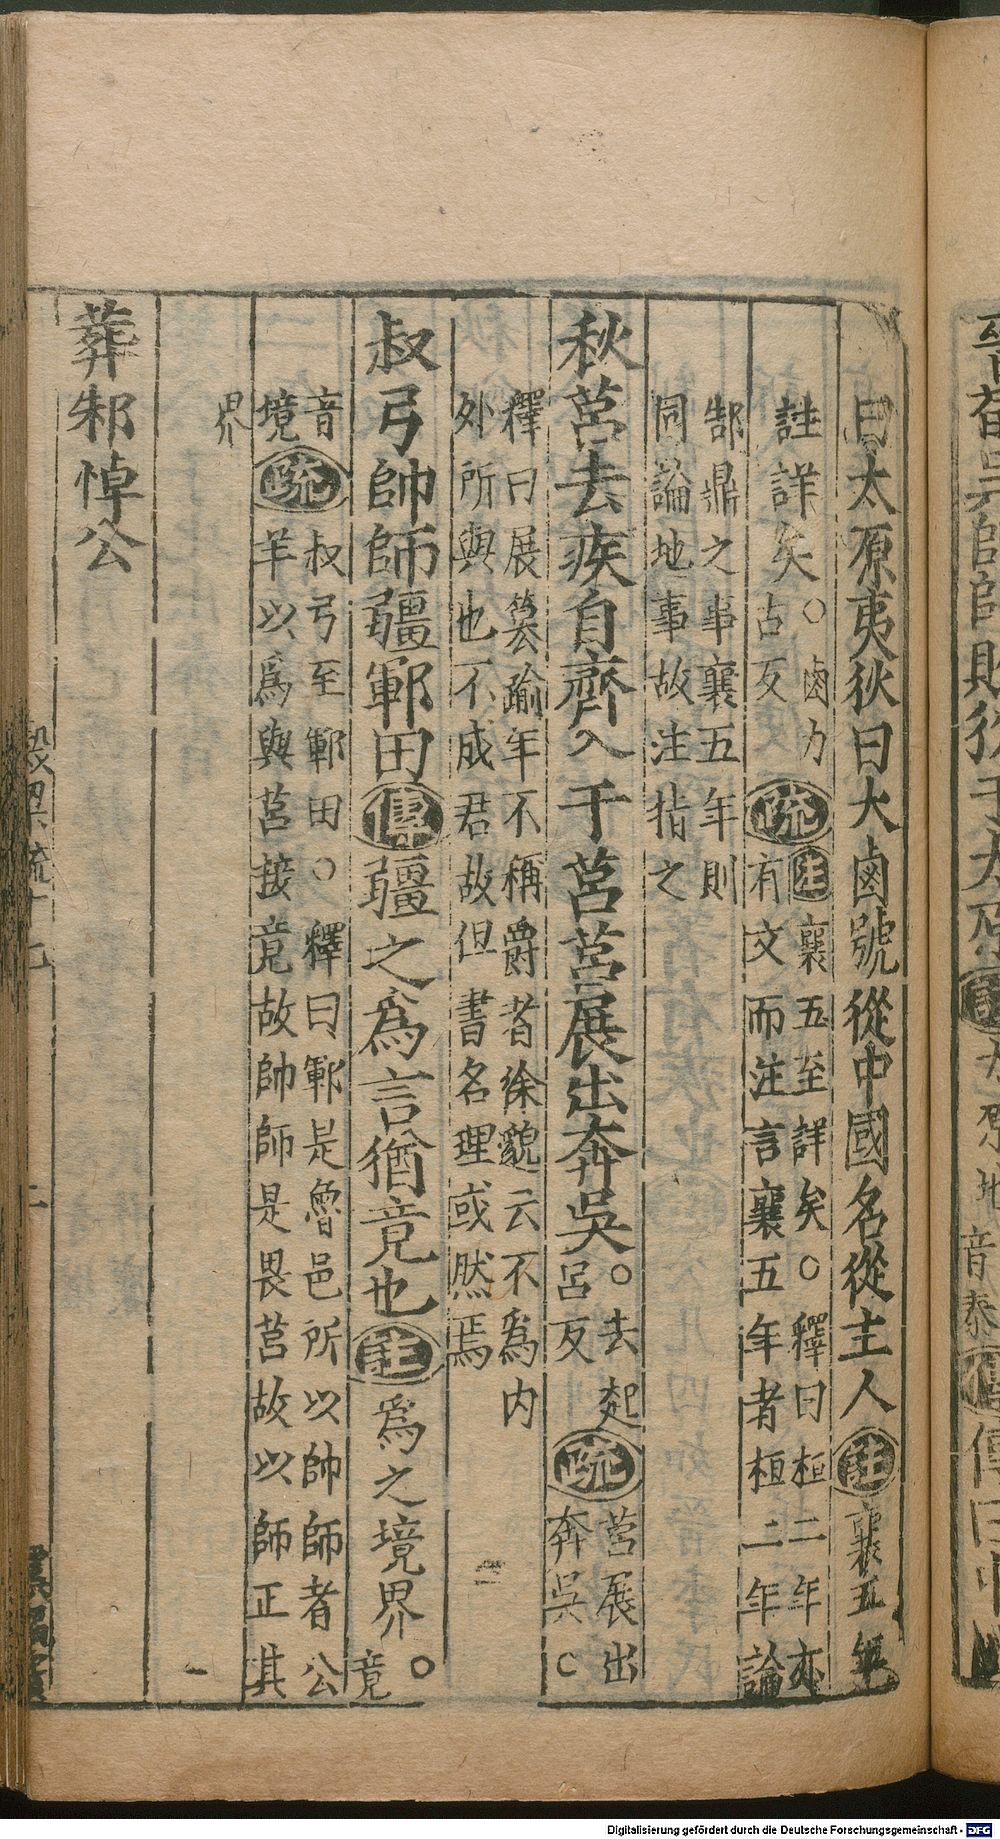 曰太原夷狄曰大鹵號從中國名從主人註襄五年
註詳矣○鹵力
古反疏註襄五至詳矣○釋曰桓二年亦
有文而注言襄五年者桓二年論
郜鼎之事襄五年則
同論地事故注指之
秋莒去疾自齊入于莒莒展出奔吳○去起
呂反疏莒展出
奔吳○
釋曰展篡踰年不稱爵者徐邈云不為内
外所與也不成君故但書名理或然焉
叔弓帥師疆鄆田傳疆之為言猶竟也註為之境界○竟
音
境疏叔弓至鄆田○釋曰鄆是魯邑所以帥師者公
羊以為與莒接竟故帥師是畏莒故以師正其
界
葬邾悼公
穀梁疏十七
二
Digitalisierung gefördert durch die Deutsche Forschungsgemeinschaft - DFG